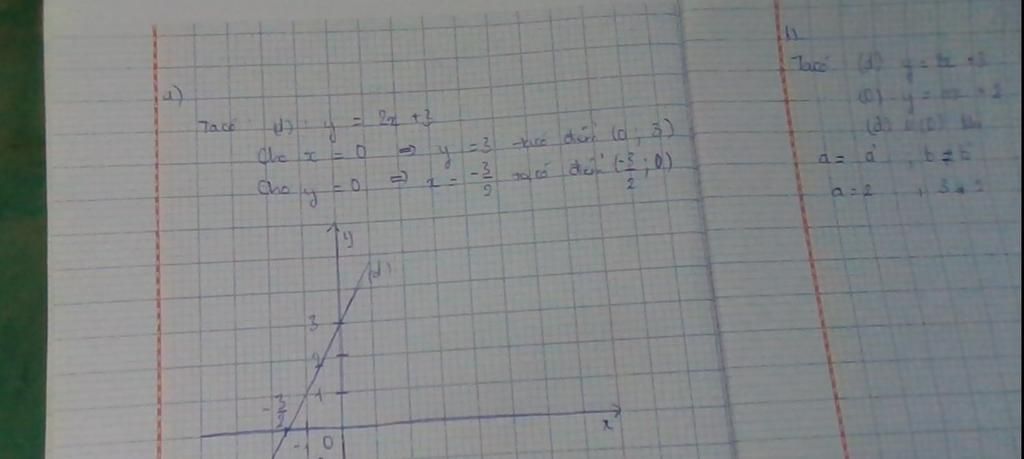 a)
Ta có (d) y = 2x + 3
Cho x = 0 ⇒ y = 3 ta có điểm (0; 3)
Cho y = 0 ⇒ x = -3/2 ta có điểm (-3/2; 0)
y
(d)
3
2
1
-3/2
-1 0
x
b)
Ta có (d) y = 2x + 3
y =
(d)
a = a' , b ≠ b'
a = 2 , 3 ≠